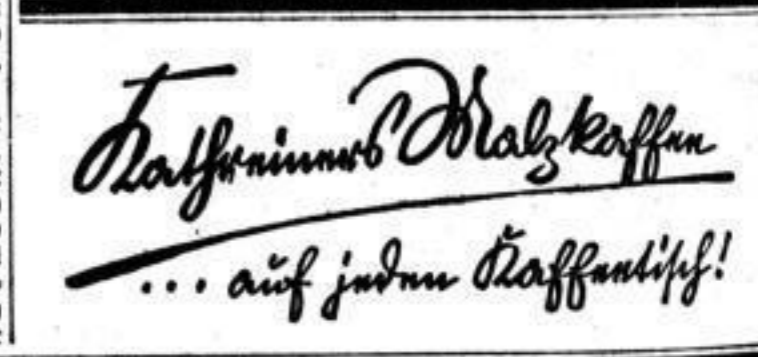 Kathreiners Malzkaffee
... auf jeden Kaffeetisch!